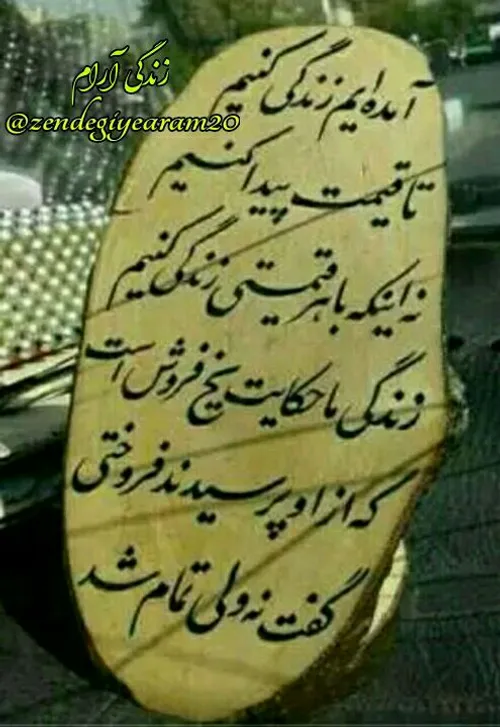 زندگی آرام
@zendegiyearam20
آمده ایم زندگی کنیم
تا قیمت پیدا کنیم
نه اینکه با هر قیمتی زندگی کنیم
زندگی ما حکایت یخ فروش است
که از او پرسیدند فروختی
گفت نه ولی تمام شد